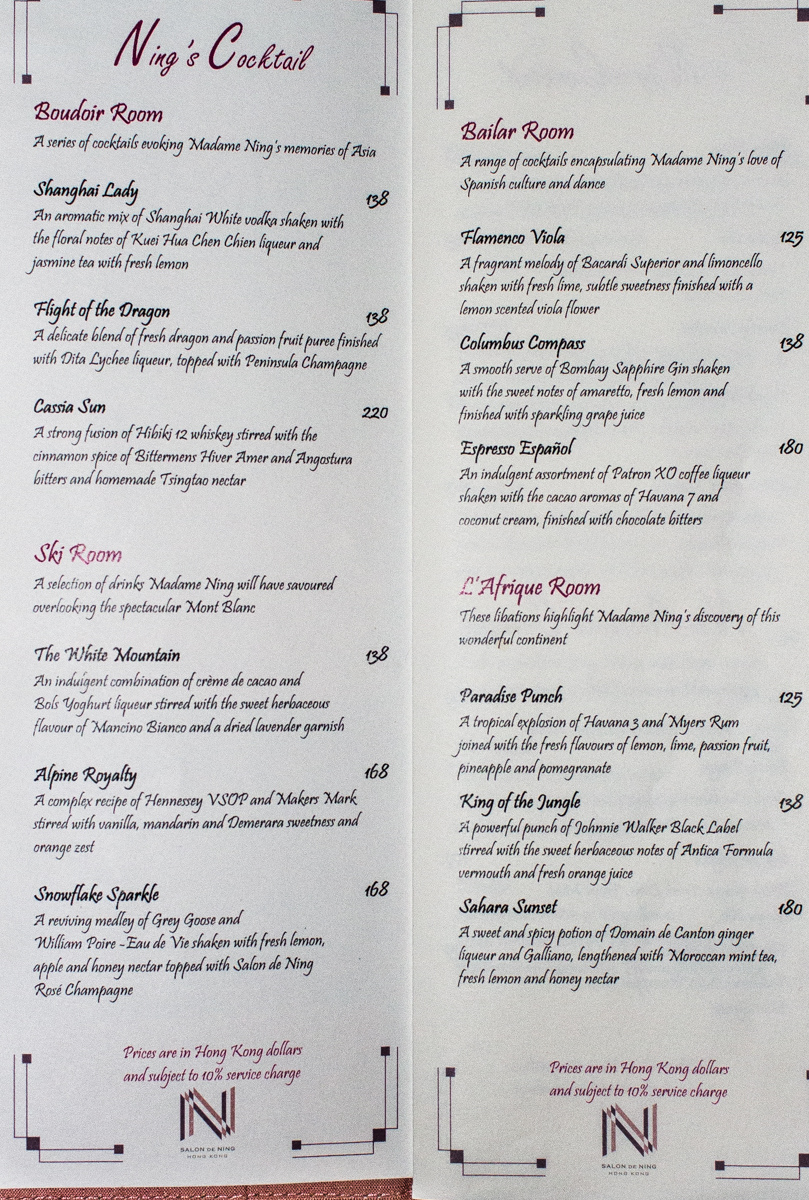 Ning's Cocktail
Boudoir Room
A series of cocktails evoking Madame Ning's memories of Asia
Shanghai Lady 138
An aromatic mix of Shanghai White vodka shaken with
the floral notes of Kuei Hua Chen Chien liqueur and
jasmine tea with fresh lemon
Flight of the Dragon 138
A delicate blend of fresh dragon and passion fruit puree finished
with Dita Lychee liqueur, topped with Peninsula Champagne
Cassia Sun 220
A strong fusion of Hibiki 12 whiskey stirred with the
cinnamon spice of Bittermens Hiver Amer and Angostura
bitters and homemade Tsingtao nectar
Ski Room
A selection of drinks Madame Ning will have savoured
overlooking the spectacular Mont Blanc
The White Mountain 138
An indulgent combination of crème de cacao and
Bols Yoghurt liqueur stirred with the sweet herbaceous
flavour of Mancino Bianco and a dried lavender garnish
Alpine Royalty 168
A complex recipe of Hennessey VSOP and Makers Mark
stirred with vanilla, mandarin and Demerara sweetness and
orange zest
Snowflake Sparkle 168
A reviving medley of Grey Goose and
William Poire ~Eau de Vie shaken with fresh lemon,
apple and honey nectar topped with Salon de Ning
Rosé Champagne
Prices are in Hong Kong dollars
and subject to 10% service charge
N
SALON DE NING
HONG KONG
Bailar Room
A range of cocktails encapsulating Madame Ning's love of
Spanish culture and dance
Flamenco Viola 125
A fragrant melody of Bacardi Superior and limoncello
shaken with fresh lime, subtle sweetness finished with a
lemon scented viola flower
Columbus Compass 138
A smooth serve of Bombay Sapphire Gin shaken
with the sweet notes of amaretto, fresh lemon and
finished with sparkling grape juice
Espresso Español 180
An indulgent assortment of Patron XO coffee liqueur
shaken with the cacao aromas of Havana 7 and
coconut cream, finished with chocolate bitters
L'Afrique Room
These libations highlight Madame Ning's discovery of this
wonderful continent
Paradise Punch 125
A tropical explosion of Havana 3 and Myers Rum
joined with the fresh flavours of lemon, lime, passion fruit,
pineapple and pomegranate
King of the Jungle 138
A powerful punch of Johnnie Walker Black Label
stirred with the sweet herbaceous notes of Antica Formula
vermouth and fresh orange juice
Sahara Sunset 180
A sweet and spicy potion of Domain de Canton ginger
liqueur and Galliano, lengthened with Moroccan mint tea,
fresh lemon and honey nectar
Prices are in Hong Kong dollars
and subject to 10% service charge
N
SALON DE NING
HONG KONG